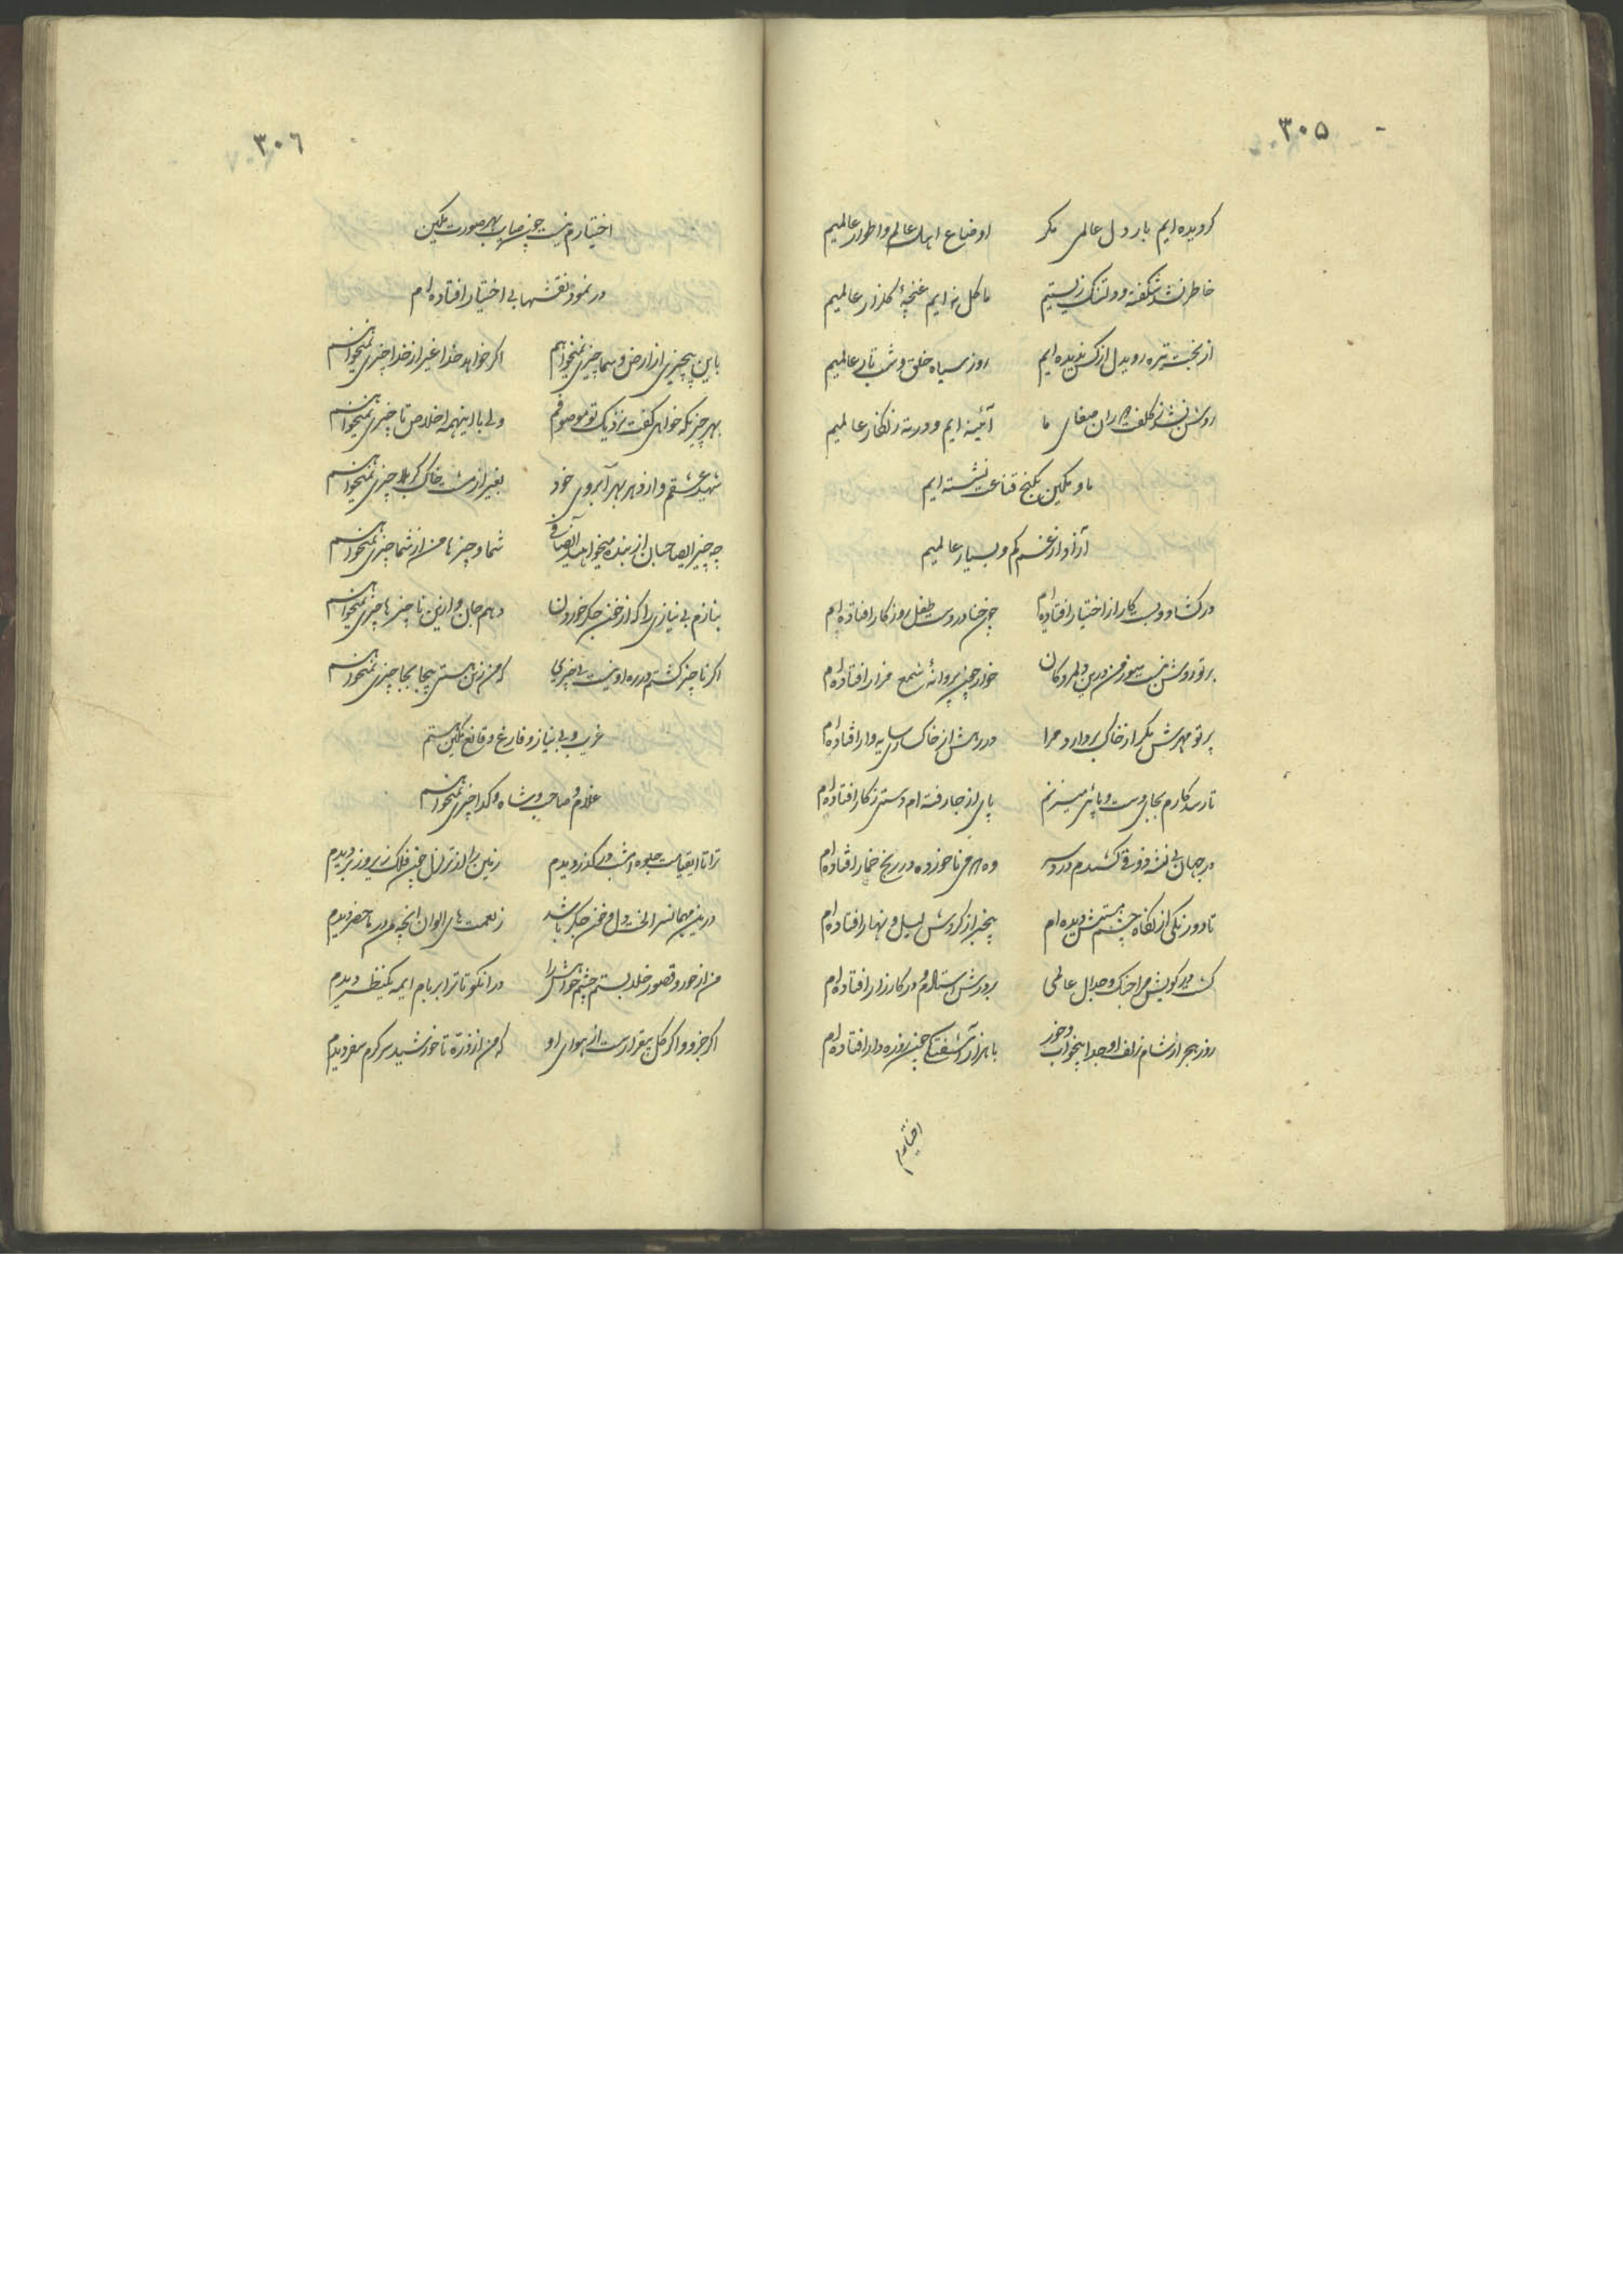 ۳۰۵
کردیده ایم بار دل عالمی مکر اوضاع اهل عالم و اطوار عالمیم
خاطر نشد شکفته و دلتنک زیستیم ما کل نه ایم غنچهٔ کلزار عالمیم
از بخت تیره رو بدل از کس ندیده ایم روز سیاه خلق و شب تار عالمیم
روشن نشد ز کلفت صفای ما آئینه ایم و در ته زنکار عالمیم
ما و تمکین بکنج قناعت نشسته ایم
آزاد از غم کم و بسیار عالمیم
در کشاد و بست کار از اختیار افتاده ام چون حنا در دست طفل روزکار افتاده ام
بر تو روشن نیست سوز من درین دلمردکان خوار چون پروانهٔ شمع مزار افتاده ام
پرتو مهرش مکر از خاک بردارد مرا در رهش از خاکساری سایه وار افتاده ام
تا رسد کارم بجای دست و پائی میزنم پای از جا رفته ام دستی ز کار افتاده ام
در جهان بی نشه ذوقی کشیدم درد سر وه که می ناخورده در رنج خمار افتاده ام
تا دو رنکی از نکاه چشم مستش دیده ام بیخبر از کردش لیل و نهار افتاده ام
کشت در کویش مرا جنک و جدال عالمی بر درش استاده و در کارزار افتاده ام
روز هجر از شام زلف او جدا بیخواب و خور با هزار آشفتکی چون روزه دار افتاده ام
اختیارم
۳۰۶
اختیارم نیست چون سیماب بهر صورت تمکین
در نمود نقشها بی اختیار افتاده ام
باین بیچیزی از ارض و سما چیزی نمیخواهم اکر خواهد خدا غیر از خدا چیزی نمیخواهم
بهر چیزیکه خواهی کفت نزدیک تو موصوفم ولی با اینهمه اخلاص تا چیزی نمیخواهم
شهید عشقم و از دهر بهر آبروی خود بغیر از مشت خاک کربلا چیزی نمیخواهم
چه چیز ایصاحبان از بنده میخواهید انصافی شما و چیزها من از شما چیزی نمیخواهم
بنازم بی نیازی را که از خون جکر خوردن دهم جان و ازین ناچیزها چیزی نمیخواهم
اکر ناچیز کشتم در ره او نیست بیچیزی که من زین هستی بیجا بجا چیزی نمیخواهم
غریب و بی نیاز و فارغ و قانع تمکین هستم
غلام و صاحب و شاه و کدا چیزی نمیخواهم
ترا تا ایقیامت جلوه امشب در کذر دیدم زمین را از تزلزل چون فلک زیر و زبر دیدم
درین مهمانسرا لخت دل و خون جکر باشد ز نعمت های الوان آنچه من در ماحضر دیدم
من از حور و قصور خلد بستم چشم خواهش را در انکو تا ترا بر بام ایمه یکنظر دیدم
اکر جزو و اکر کل بیقرارست از هوای او که من از ذره تا خورشید سرکرم سفر دیدم